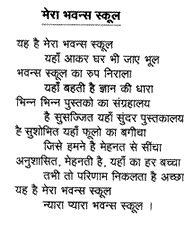 मेरा भवन्स स्कूल
यह है मेरा भवन्स स्कूल
यहाँ आकर घर भी जाए भूल
भवन्स स्कूल का रुप निराला
यहाँ बहती है ज्ञान की धारा
भिन्न भिन्न पुस्तको का संग्रहालय
है सुसज्जित यहाँ सुंदर पुस्तकालय
है सुशोभित यहाँ फूलो का बगीचा
जिसे हमने है मेहनत से सींचा
अनुशासित, मेहनती है, यहाँ का हर बच्चा
तभी तो परिणाम निकलता है अच्छा
यह है मेरा भवन्स स्कूल
न्यारा प्यारा भवन्स स्कूल ।